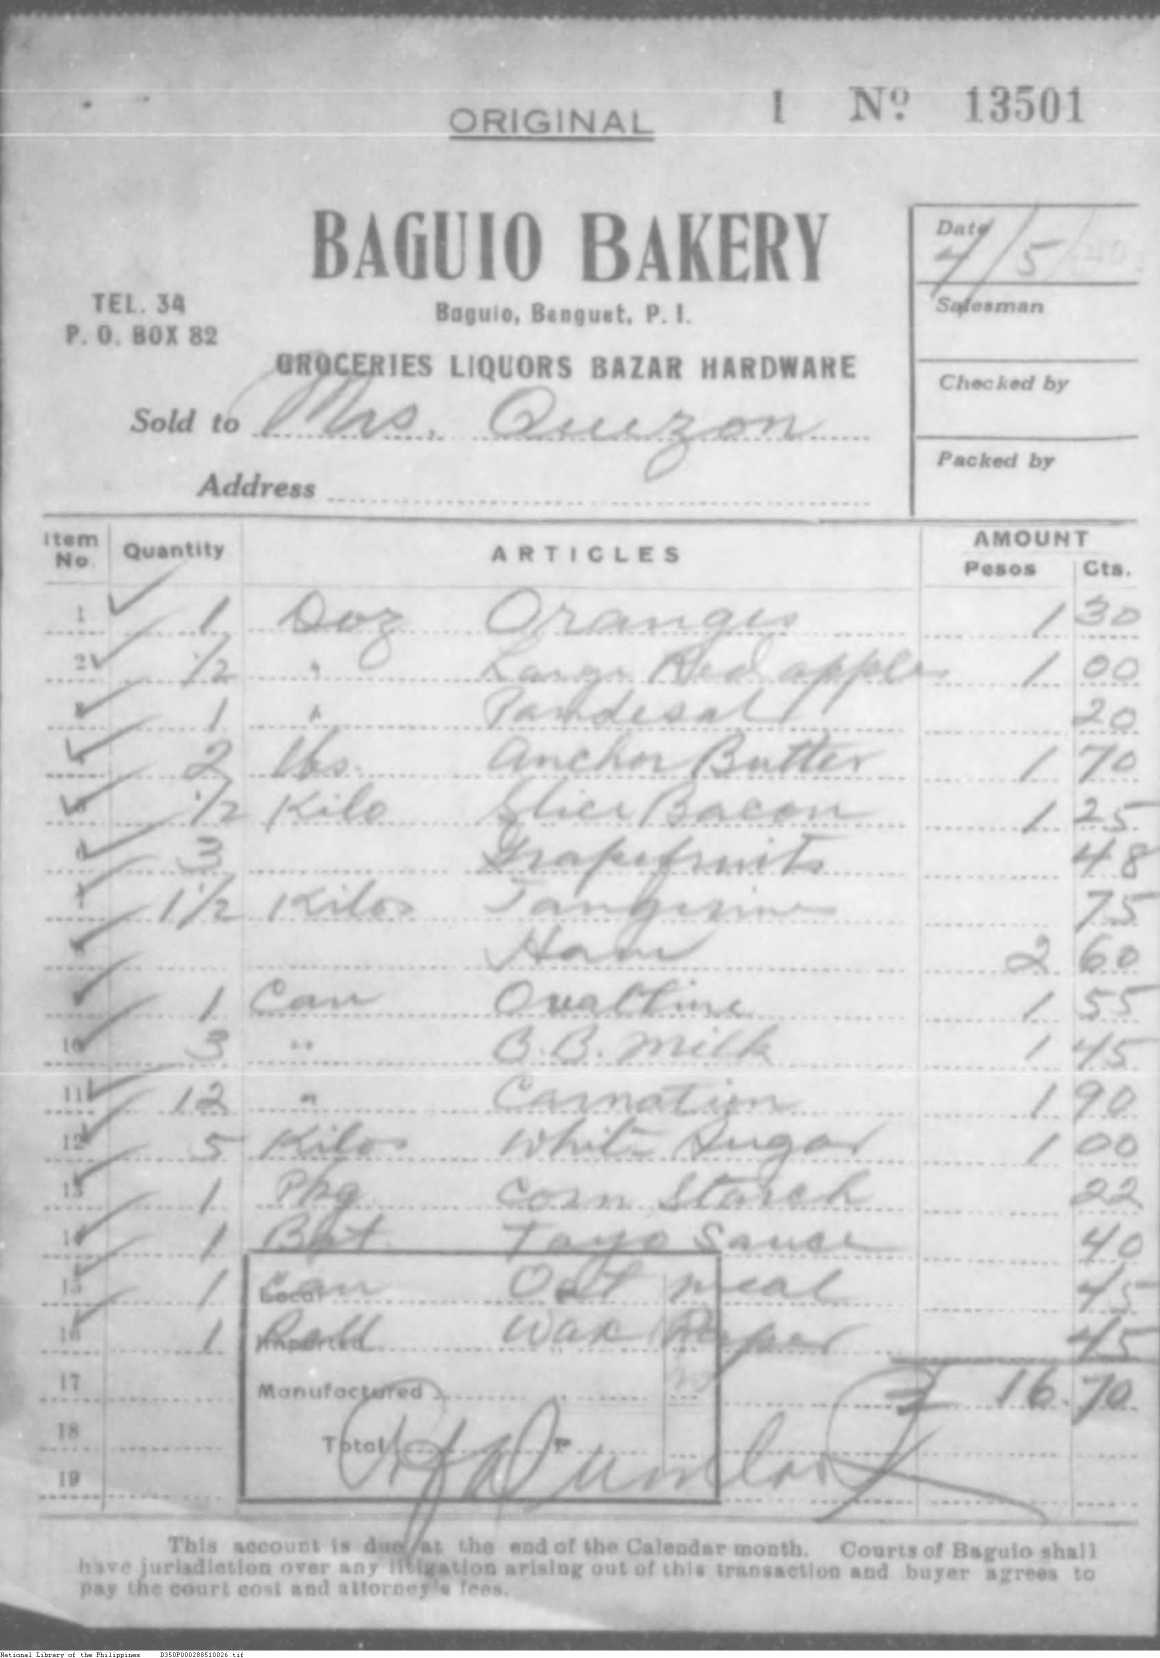 ORIGINAL 1 Nº 13501
BAGUIO BAKERY
Date
4/5/40
TEL. 34
Baguio, Benguet, P. I.
Salesman
P. O. BOX 82
GROCERIES LIQUORS BAZAR HARDWARE
Checked by
Sold to Mrs. Quezon
Packed by
Address
Item No. Quantity ARTICLES AMOUNT
Pesos Cts.
1 1 Doz Oranges 1 30
2 1/2 " Large Red apples 1 00
3 1 " Pandesal 20
4 2 lbs. Anchor Butter 1 70
5 1/2 Kilo Slice Bacon 1 25
6 3 Grapefruits 48
7 1 1/2 Kilos Tangerine 75
8 Ham 2 60
9 1 Can Ovaltine 1 55
10 3 " B.B. Milk 1 45
11 12 " Carnation 1 90
12 5 Kilos White Sugar 1 00
13 1 Pkg Corn Starch 22
14 1 Bot Tayo Sauce 40
15 1 Can Oat meal 45
Local
16 1 Roll Wax Paper 45
Imported
17 Manufactured 16.70
18 Total P
19
This account is due at the end of the Calendar month. Courts of Baguio shall
have jurisdiction over any litigation arising out of this transaction and buyer agrees to
pay the court cost and attorney's fees.
National Library of the Philippines D350P000288510026.tif